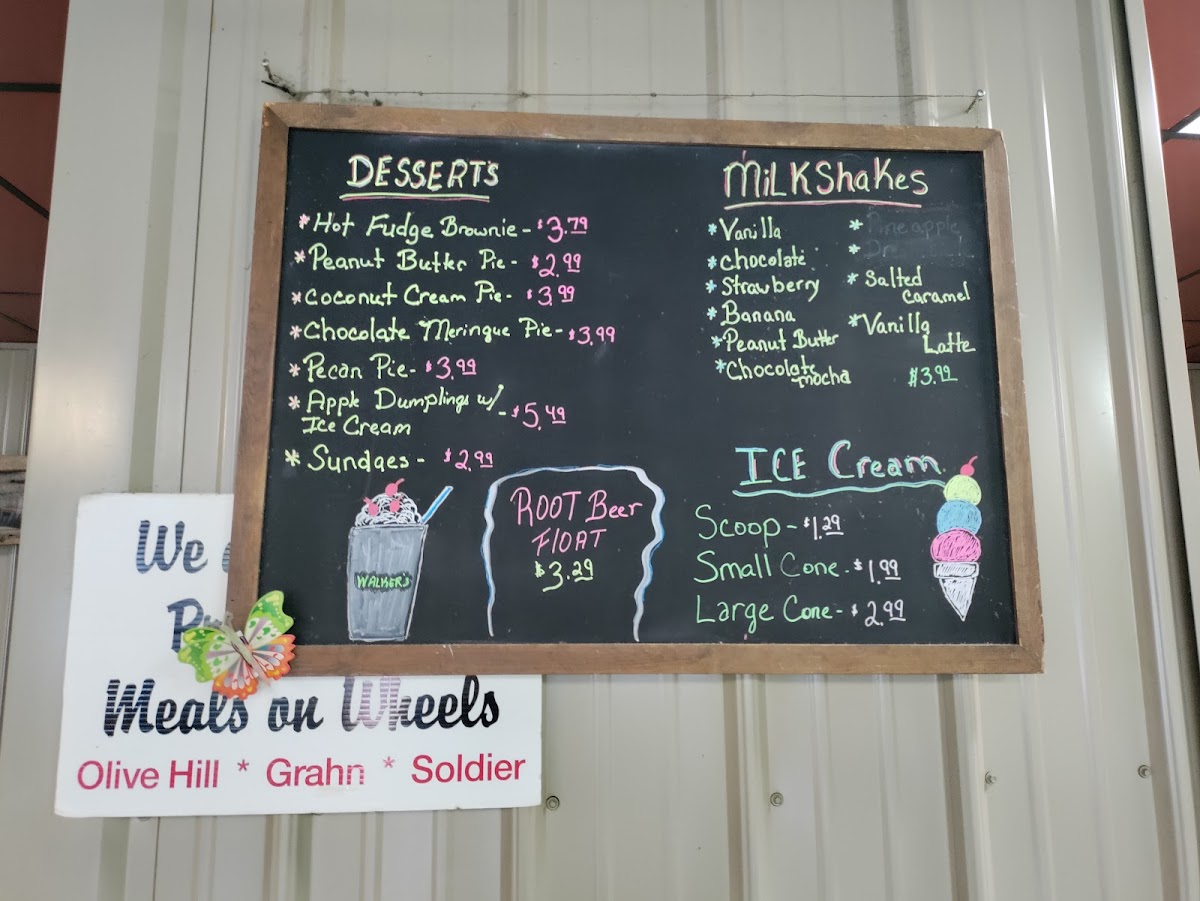 DESSERTS
*Hot Fudge Brownie - $3.79
*Peanut Butter Pie - $2.99
*Coconut Cream Pie - $3.99
*Chocolate Meringue Pie - $3.99
*Pecan Pie - $3.99
*Apple Dumplings w/
Ice Cream - $5.49
*Sundaes - $2.99
WALKER'S
ROOT Beer
FLOAT
$3.29
MiLKShaKes
*Vanilla
*Chocolate
*Strawberry
*Banana
*Peanut Butter
*Chocolate
mocha
*Pineapple
*
*Salted
Caramel
*Vanilla
Latte
$3.99
ICE Cream
Scoop - $1.29
Small Cone - $1.99
Large Cone - $2.99
We
Meals on Wheels
Olive Hill * Grahn * Soldier